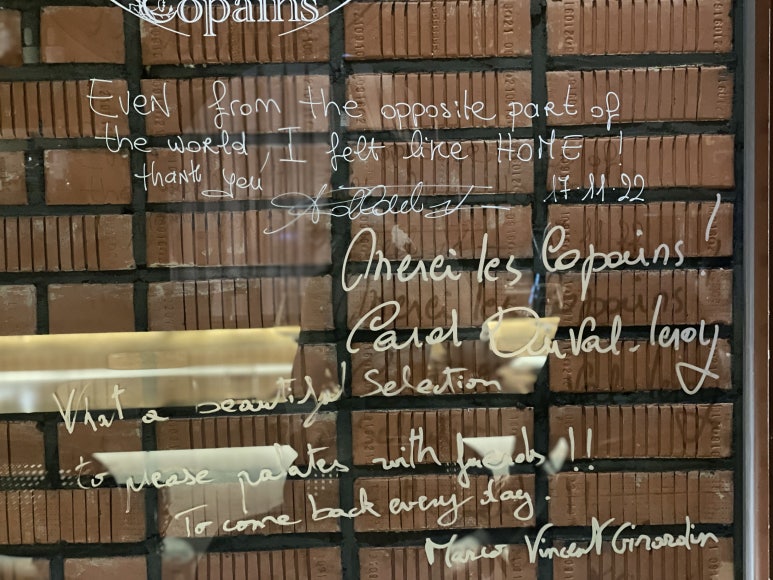 Copains
EVEN from the opposite part of
the world, I felt like HOME !
thank you
17.11.22
Merci les Copains !
Carol Duval-Leroy
What a beautiful Selection
to please palates with friends !!
To come back every day.
Marco Vincent Girardin